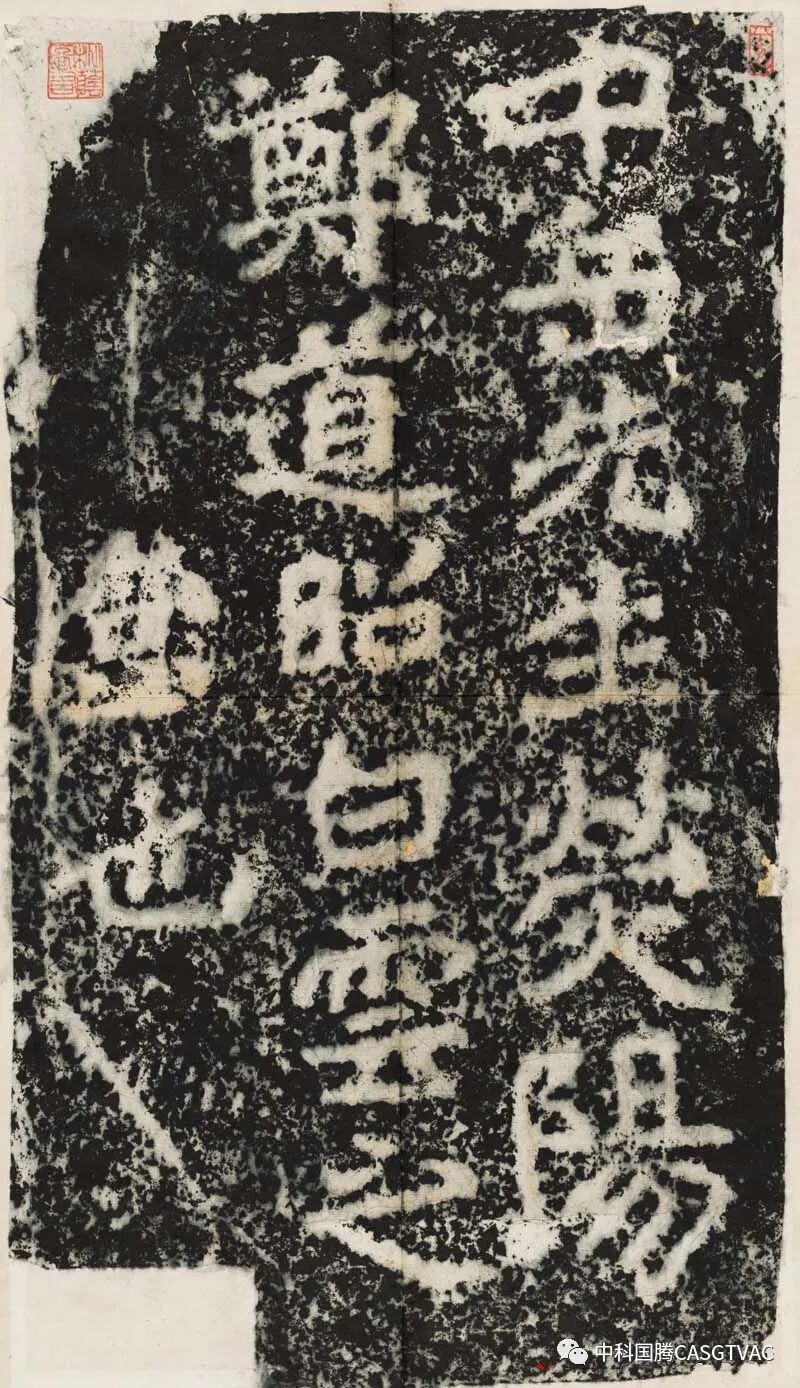 中岳先生熒陽
鄭道昭白雲之
堂也
中科国腾CASGTVAC